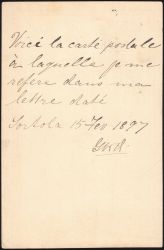 Voici la carte postale
à laquelle je me
réfère dans ma
lettre daté
Tortola 15 Fev 1897